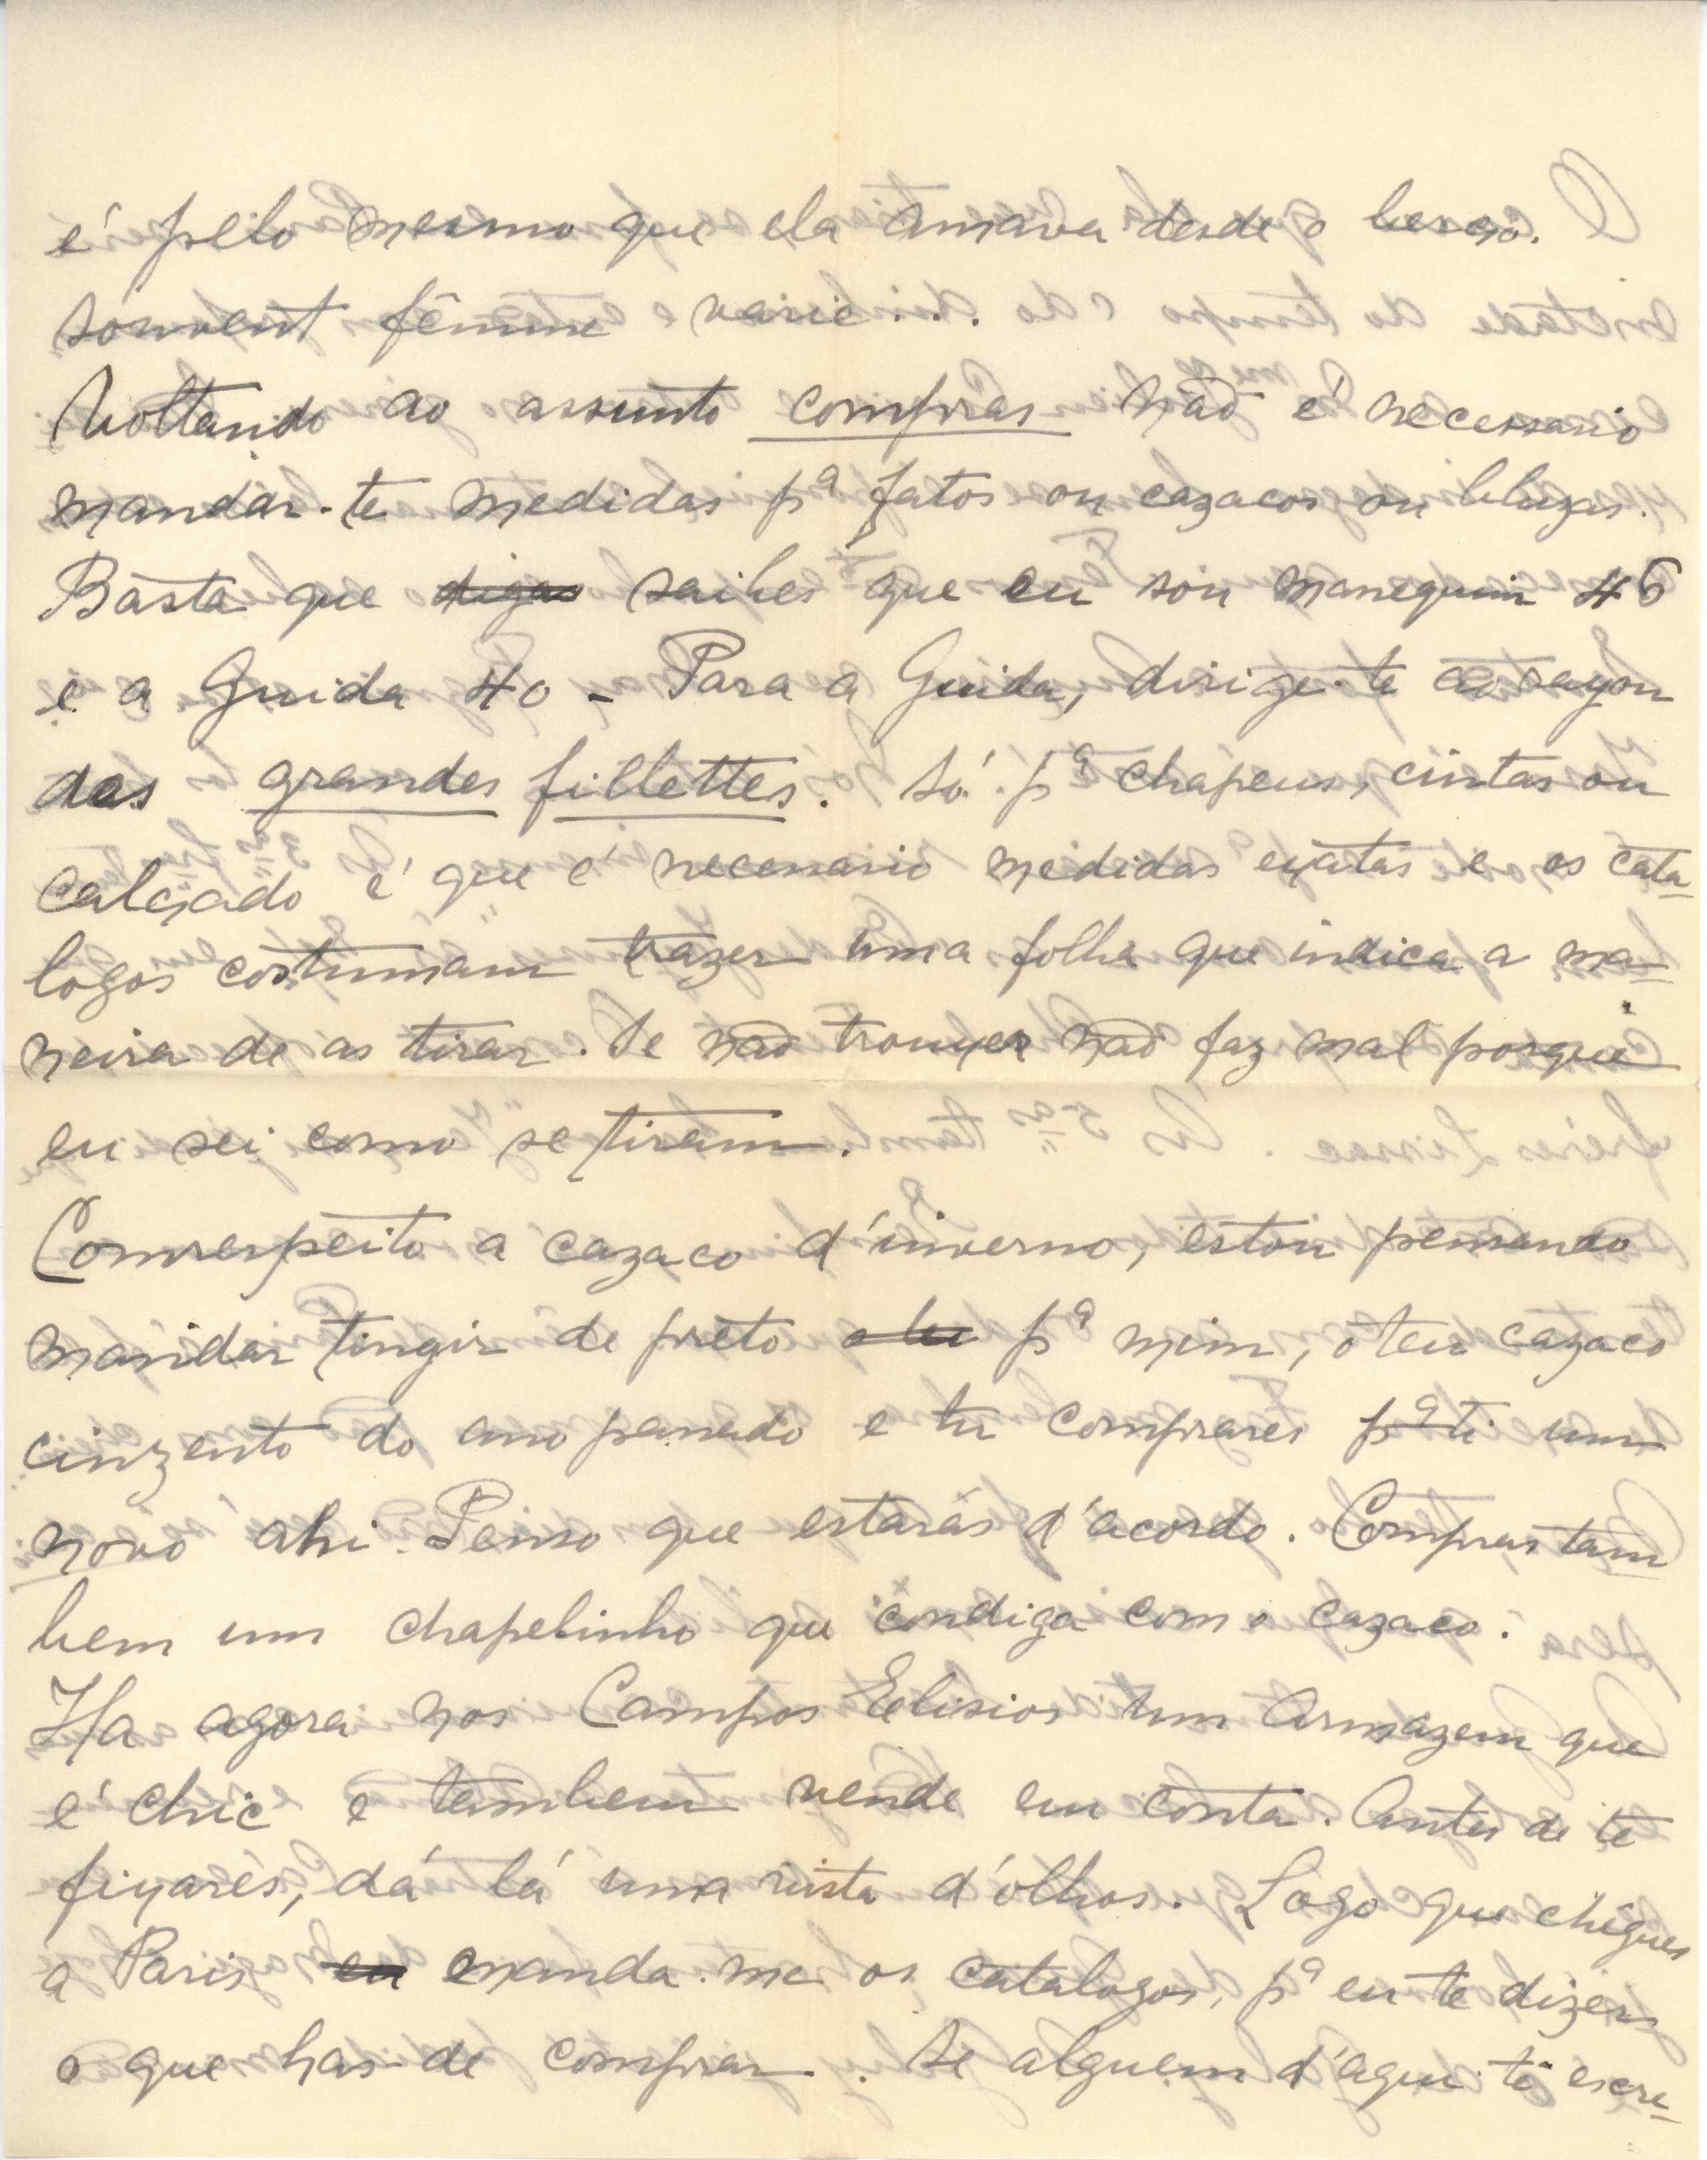 é pelo mesmo que ela amava desde o berço.
Souvent fêmme varie...
Voltando ao assunto compras não é necessario
mandar-te medidas pª fatos ou cazacos ou bluzas.
Basta que digas saibes que eu sou manequim 46
e a Guida 40 - Para a Guida, dirige-te ao rayon
das grandes fillettes. Só pª chapeus, cintas ou
calçado é que é necessario medidas exatas e os cata-
logos costumam trazer uma folha que indica a ma-
neira de as tirar. Se não trouxer não faz mal porque
eu sei como se tiram.
Com respeito a cazaco d'inverno, estou pensando
mandar tingir de preto o teu pª mim, o teu cazaco
cinzento do ano passado e tu comprares pª ti um
novo ahi. Penso que estarás d'acordo. Compras tam
bem um chapelinho que condiga com o cazaco.
Ha agora nos Campos Eelisios um Armazem que
é chic e tambem vende em conta. Antes de te
fixarés, dá lá uma vista d'olhos. Logo que chêgues
a Paris eu manda-me os catalogos, pª eu te dizer
o que has-de comprar. Se alguem d'aqui te escre-